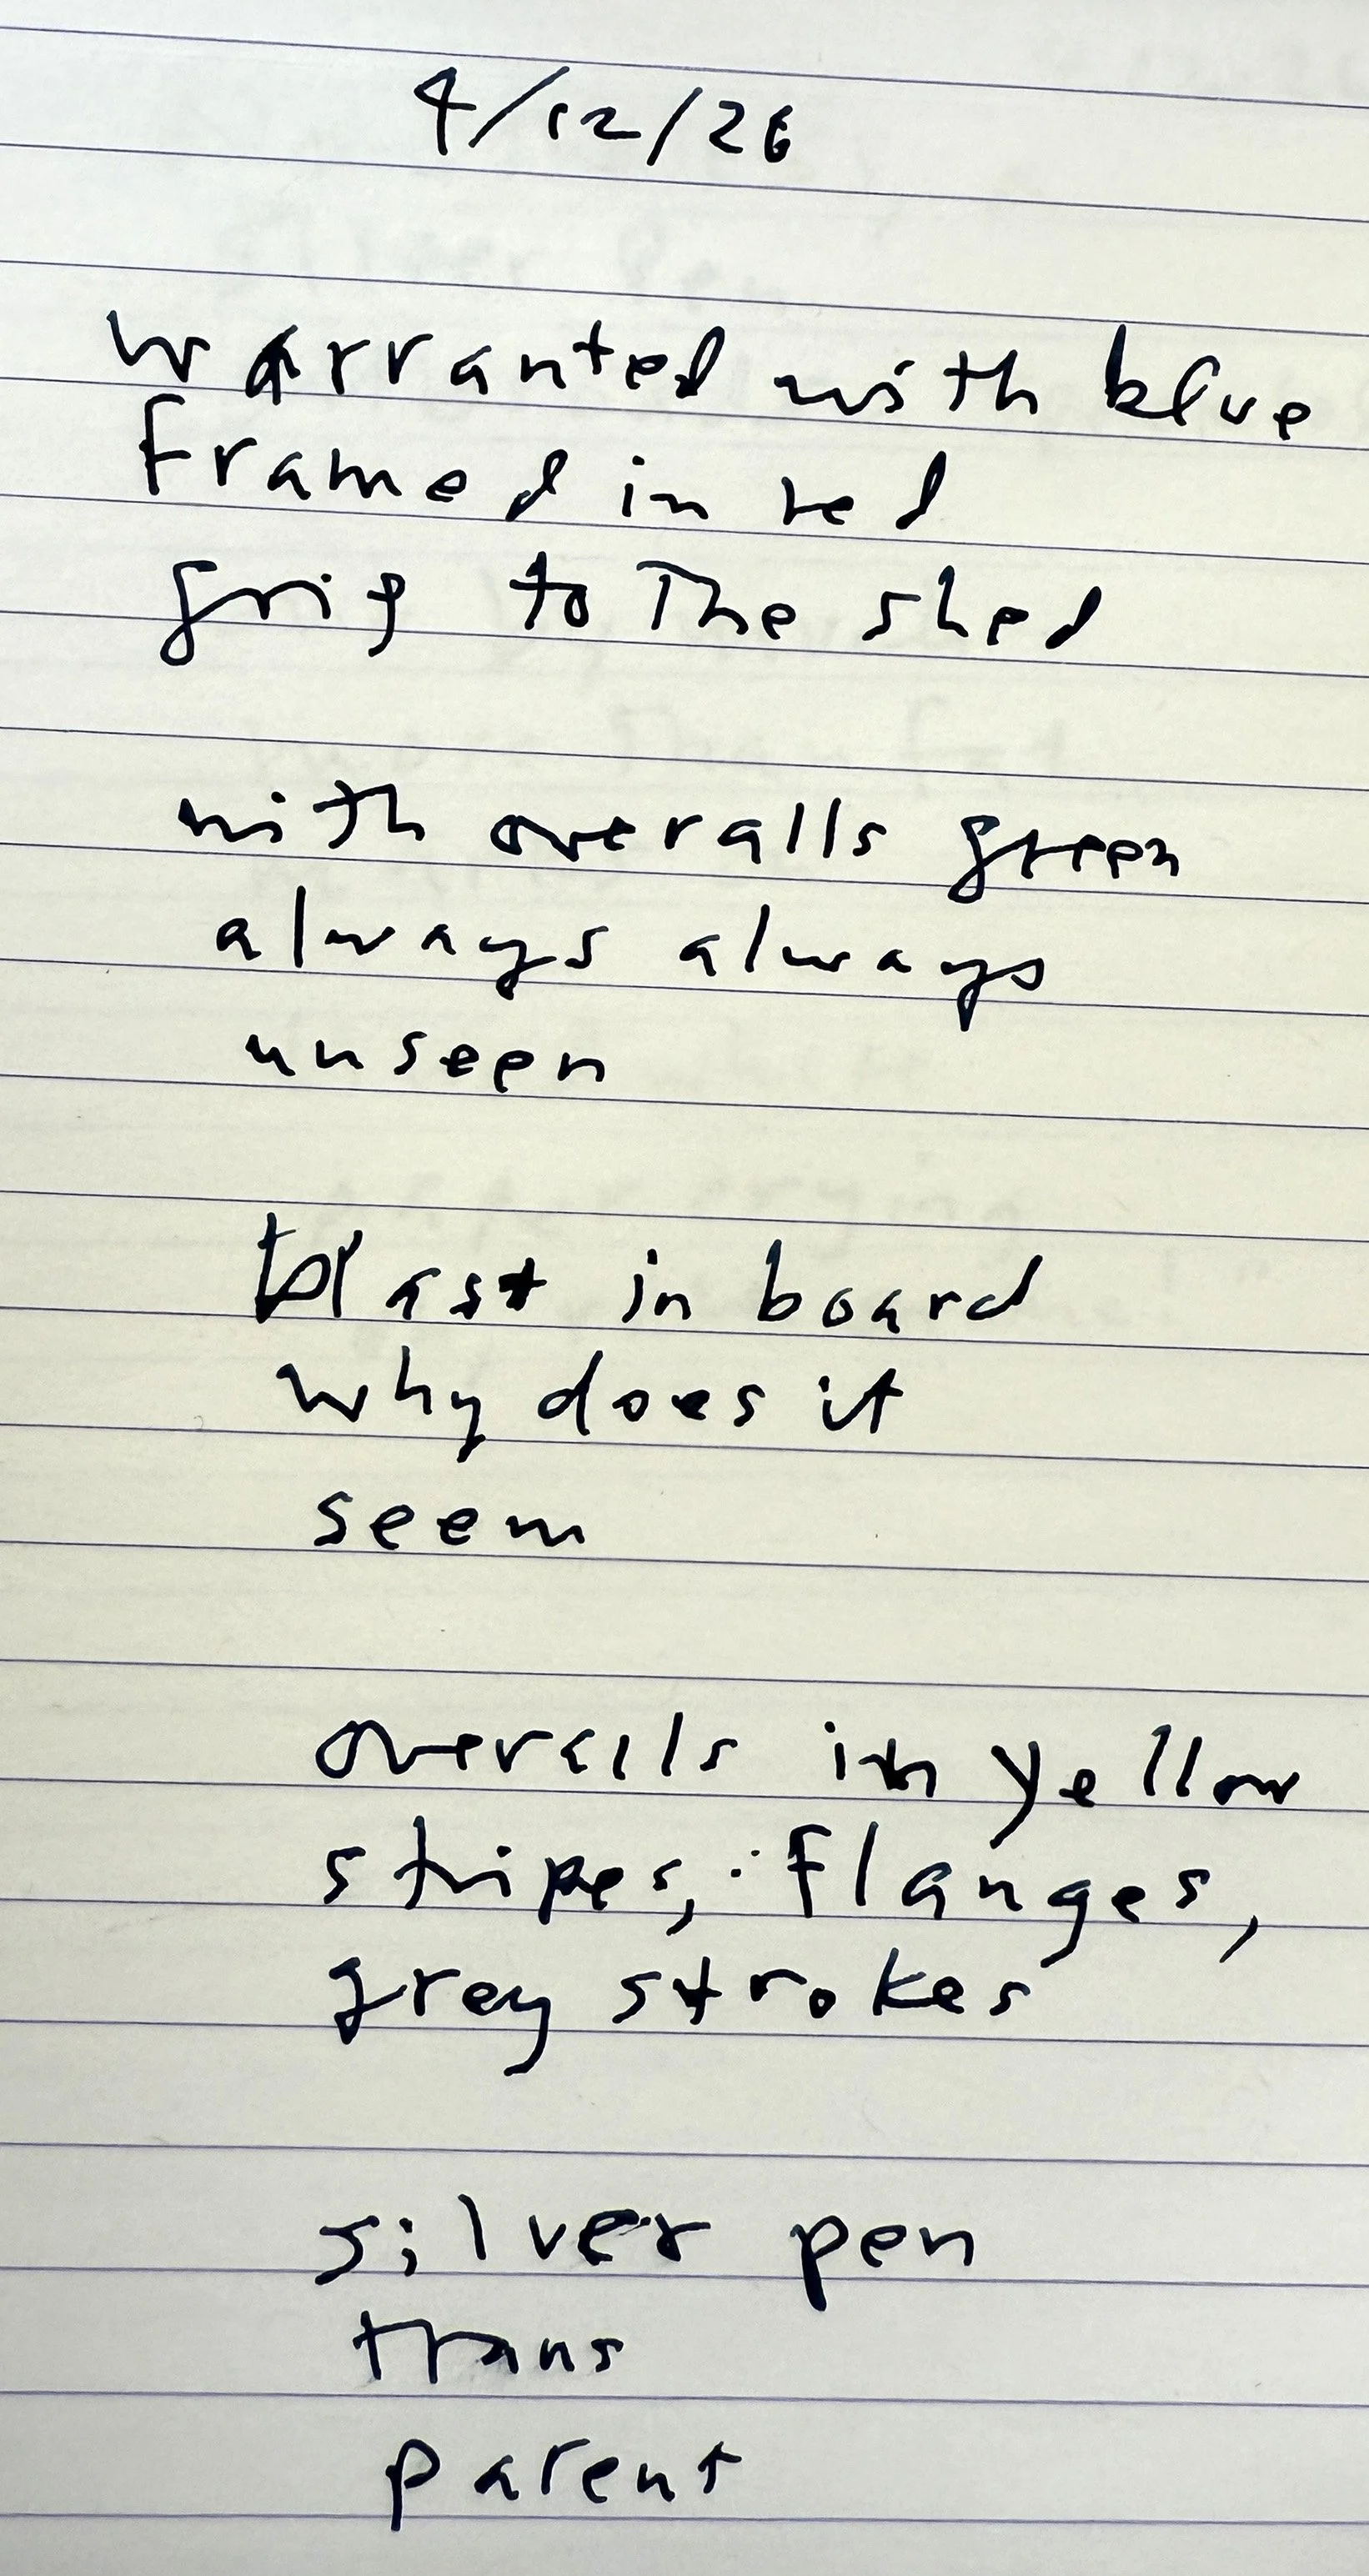 4/12/26
warranted with blue
framed in red
grip to the shed
with overalls green
always always
unseen
blast in board
why does it
seem
overalls in yellow
stripes, flanges,
grey strokes
silver pen
trans
parent